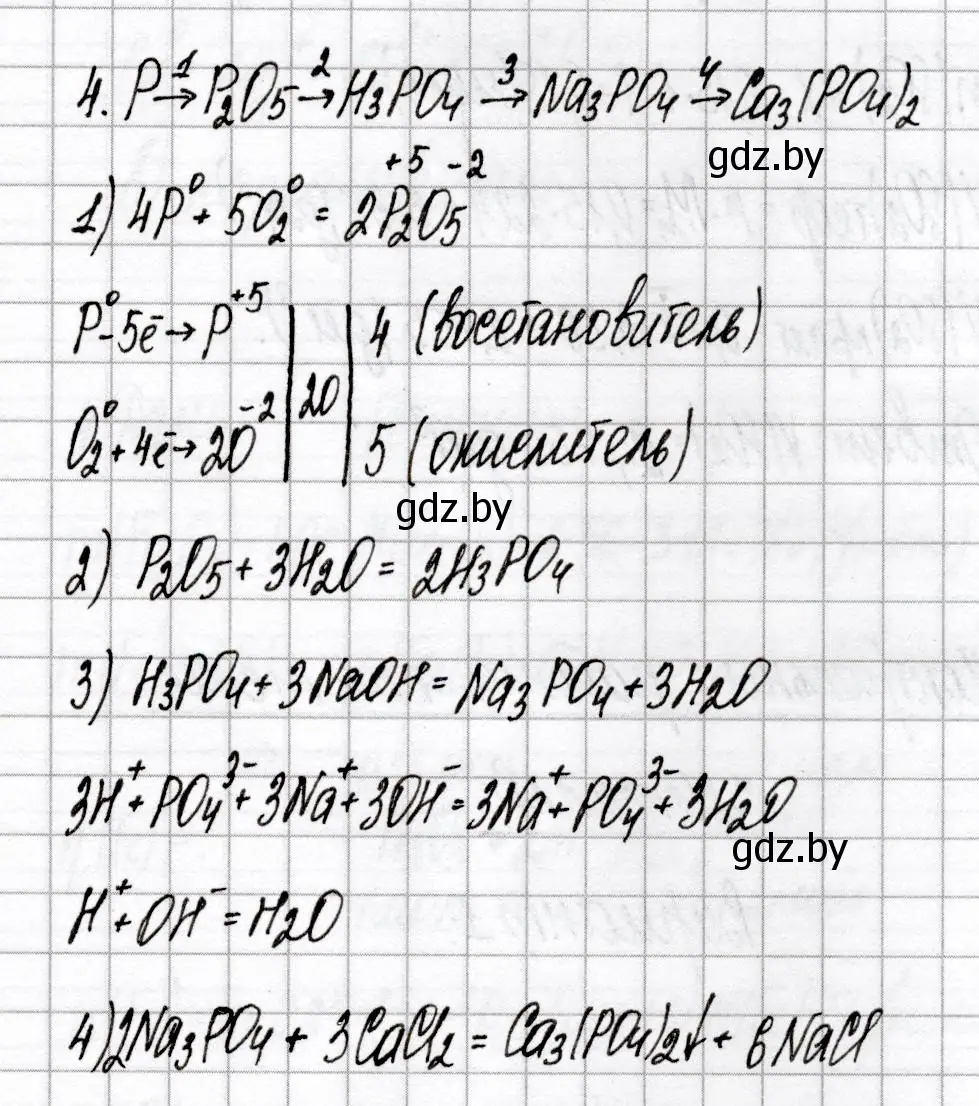 4. P →¹ P₂O₅ →² H₃PO₄ →³ Na₃PO₄ →⁴ Ca₃(PO₄)₂
gdz.by
1) 4P⁰ + 5O₂⁰ = 2P₂⁺⁵O₅⁻²
P⁰ - 5ē → P⁺⁵ | 20 | 4 (восстановитель)
O₂⁰ + 4ē → 2O⁻² | 20 | 5 (окислитель)
gdz.by
2) P₂O₅ + 3H₂O = 2H₃PO₄
3) H₃PO₄ + 3NaOH = Na₃PO₄ + 3H₂O
3H⁺ + PO₄³⁻ + 3Na⁺ + 3OH⁻ = 3Na⁺ + PO₄³⁻ + 3H₂O
gdz.by
H⁺ + OH⁻ = H₂O
4) 2Na₃PO₄ + 3CaCl₂ = Ca₃(PO₄)₂↓ + 6NaCl